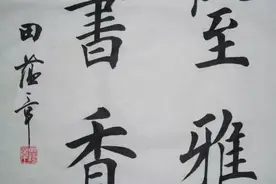 室雅
書香
田蕴章